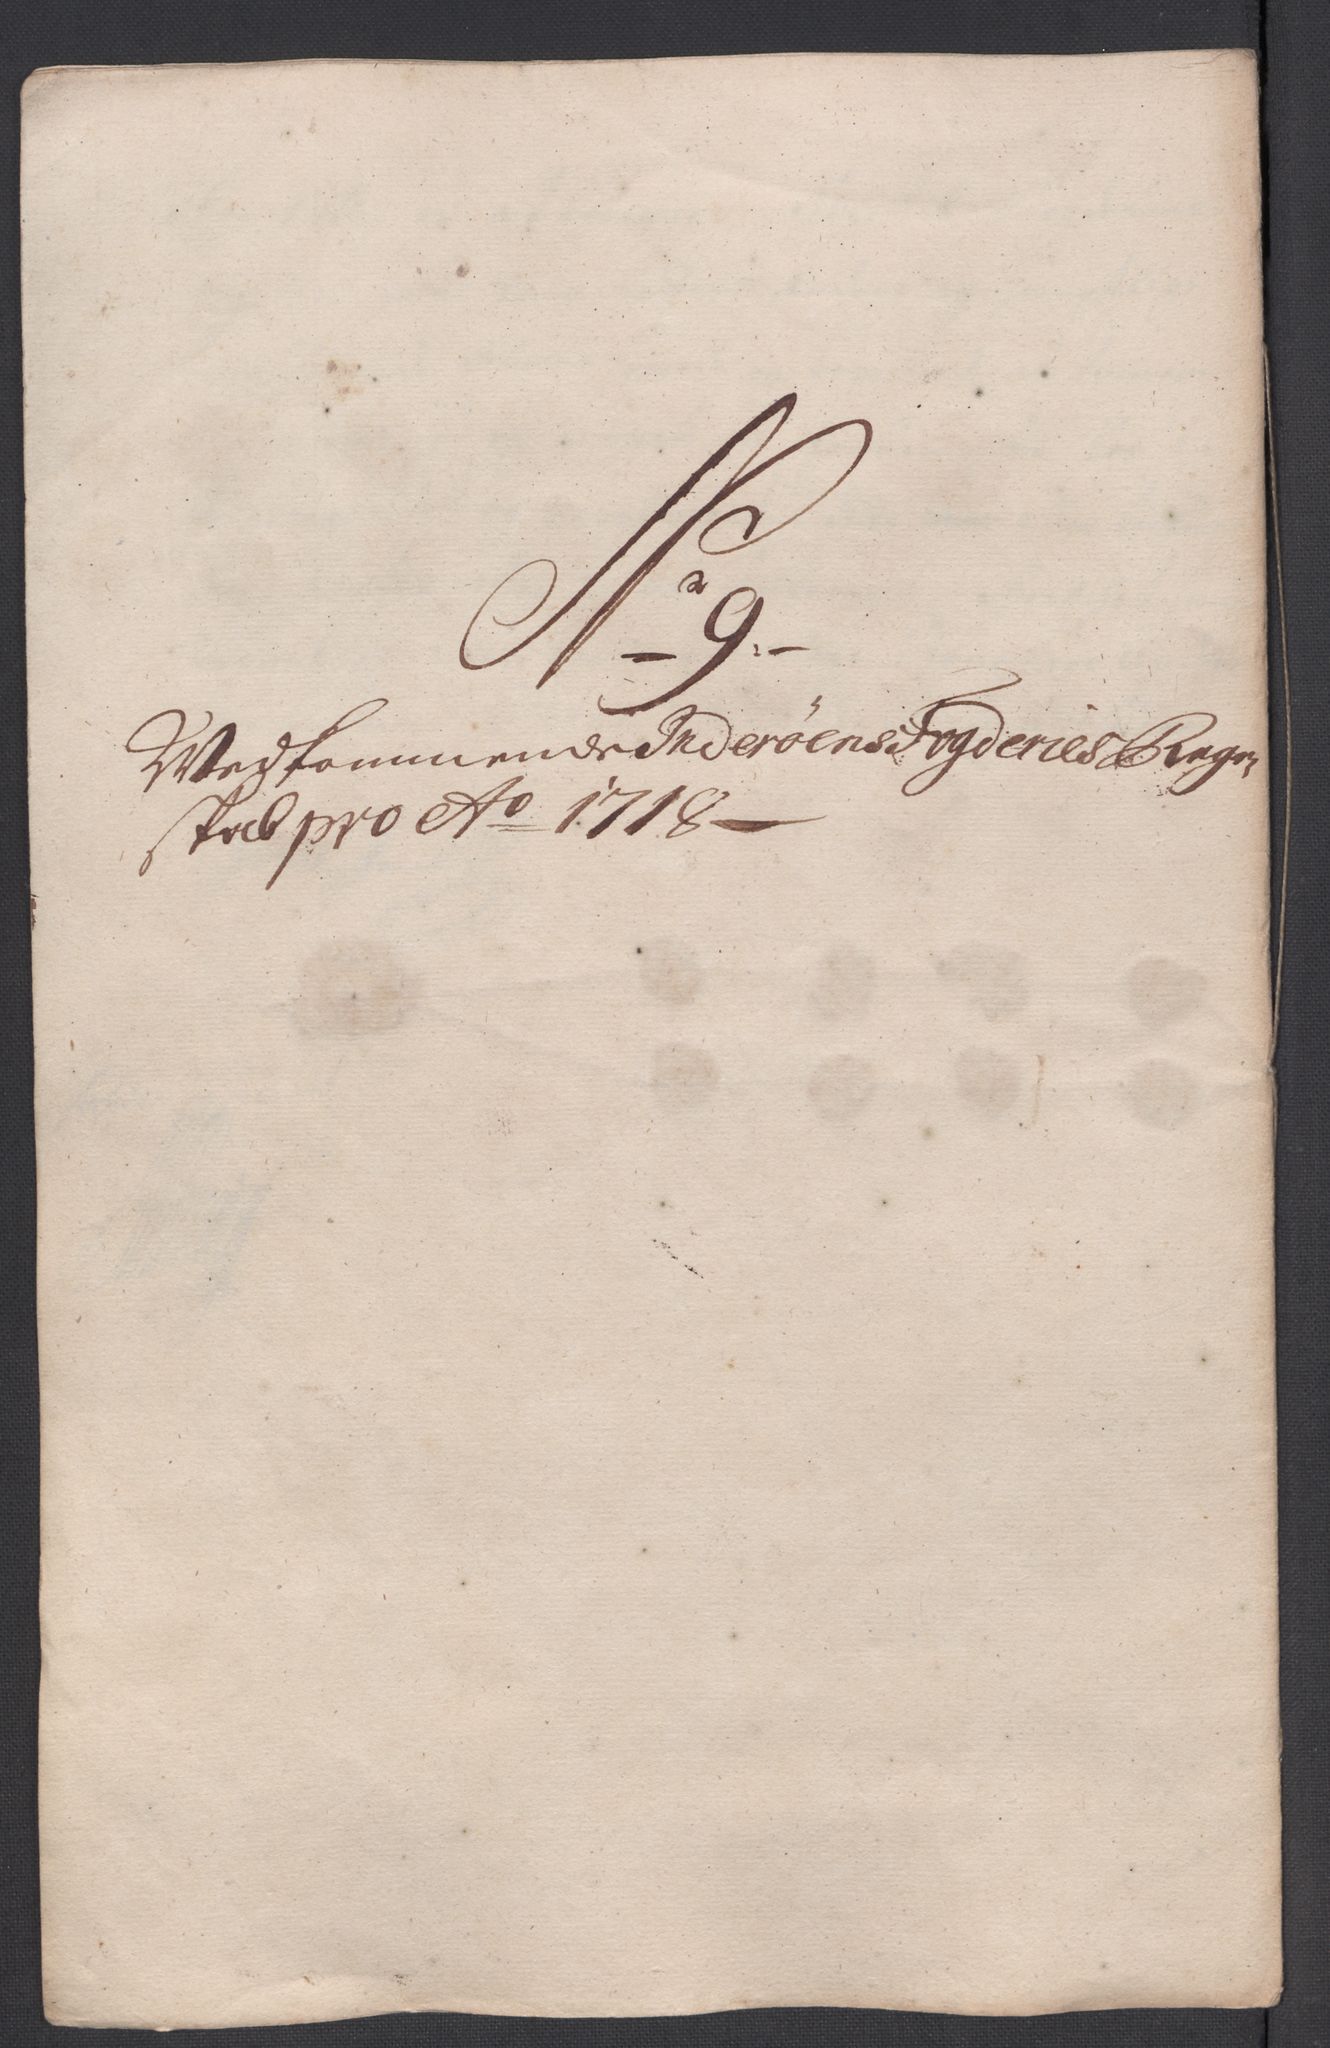 No
- 9.-
Wedkommende Inderöens Fogderies Regn-
skab pro Ao 1718